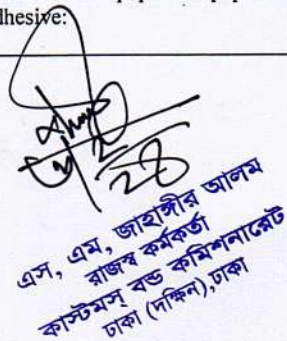 dhesive:
28
এস, এম, জাহাঙ্গীর আলম
রাজস্ব কর্মকর্তা
কাস্টমস্ বন্ড কমিশনারেট
ঢাকা (দক্ষিন), ঢাকা